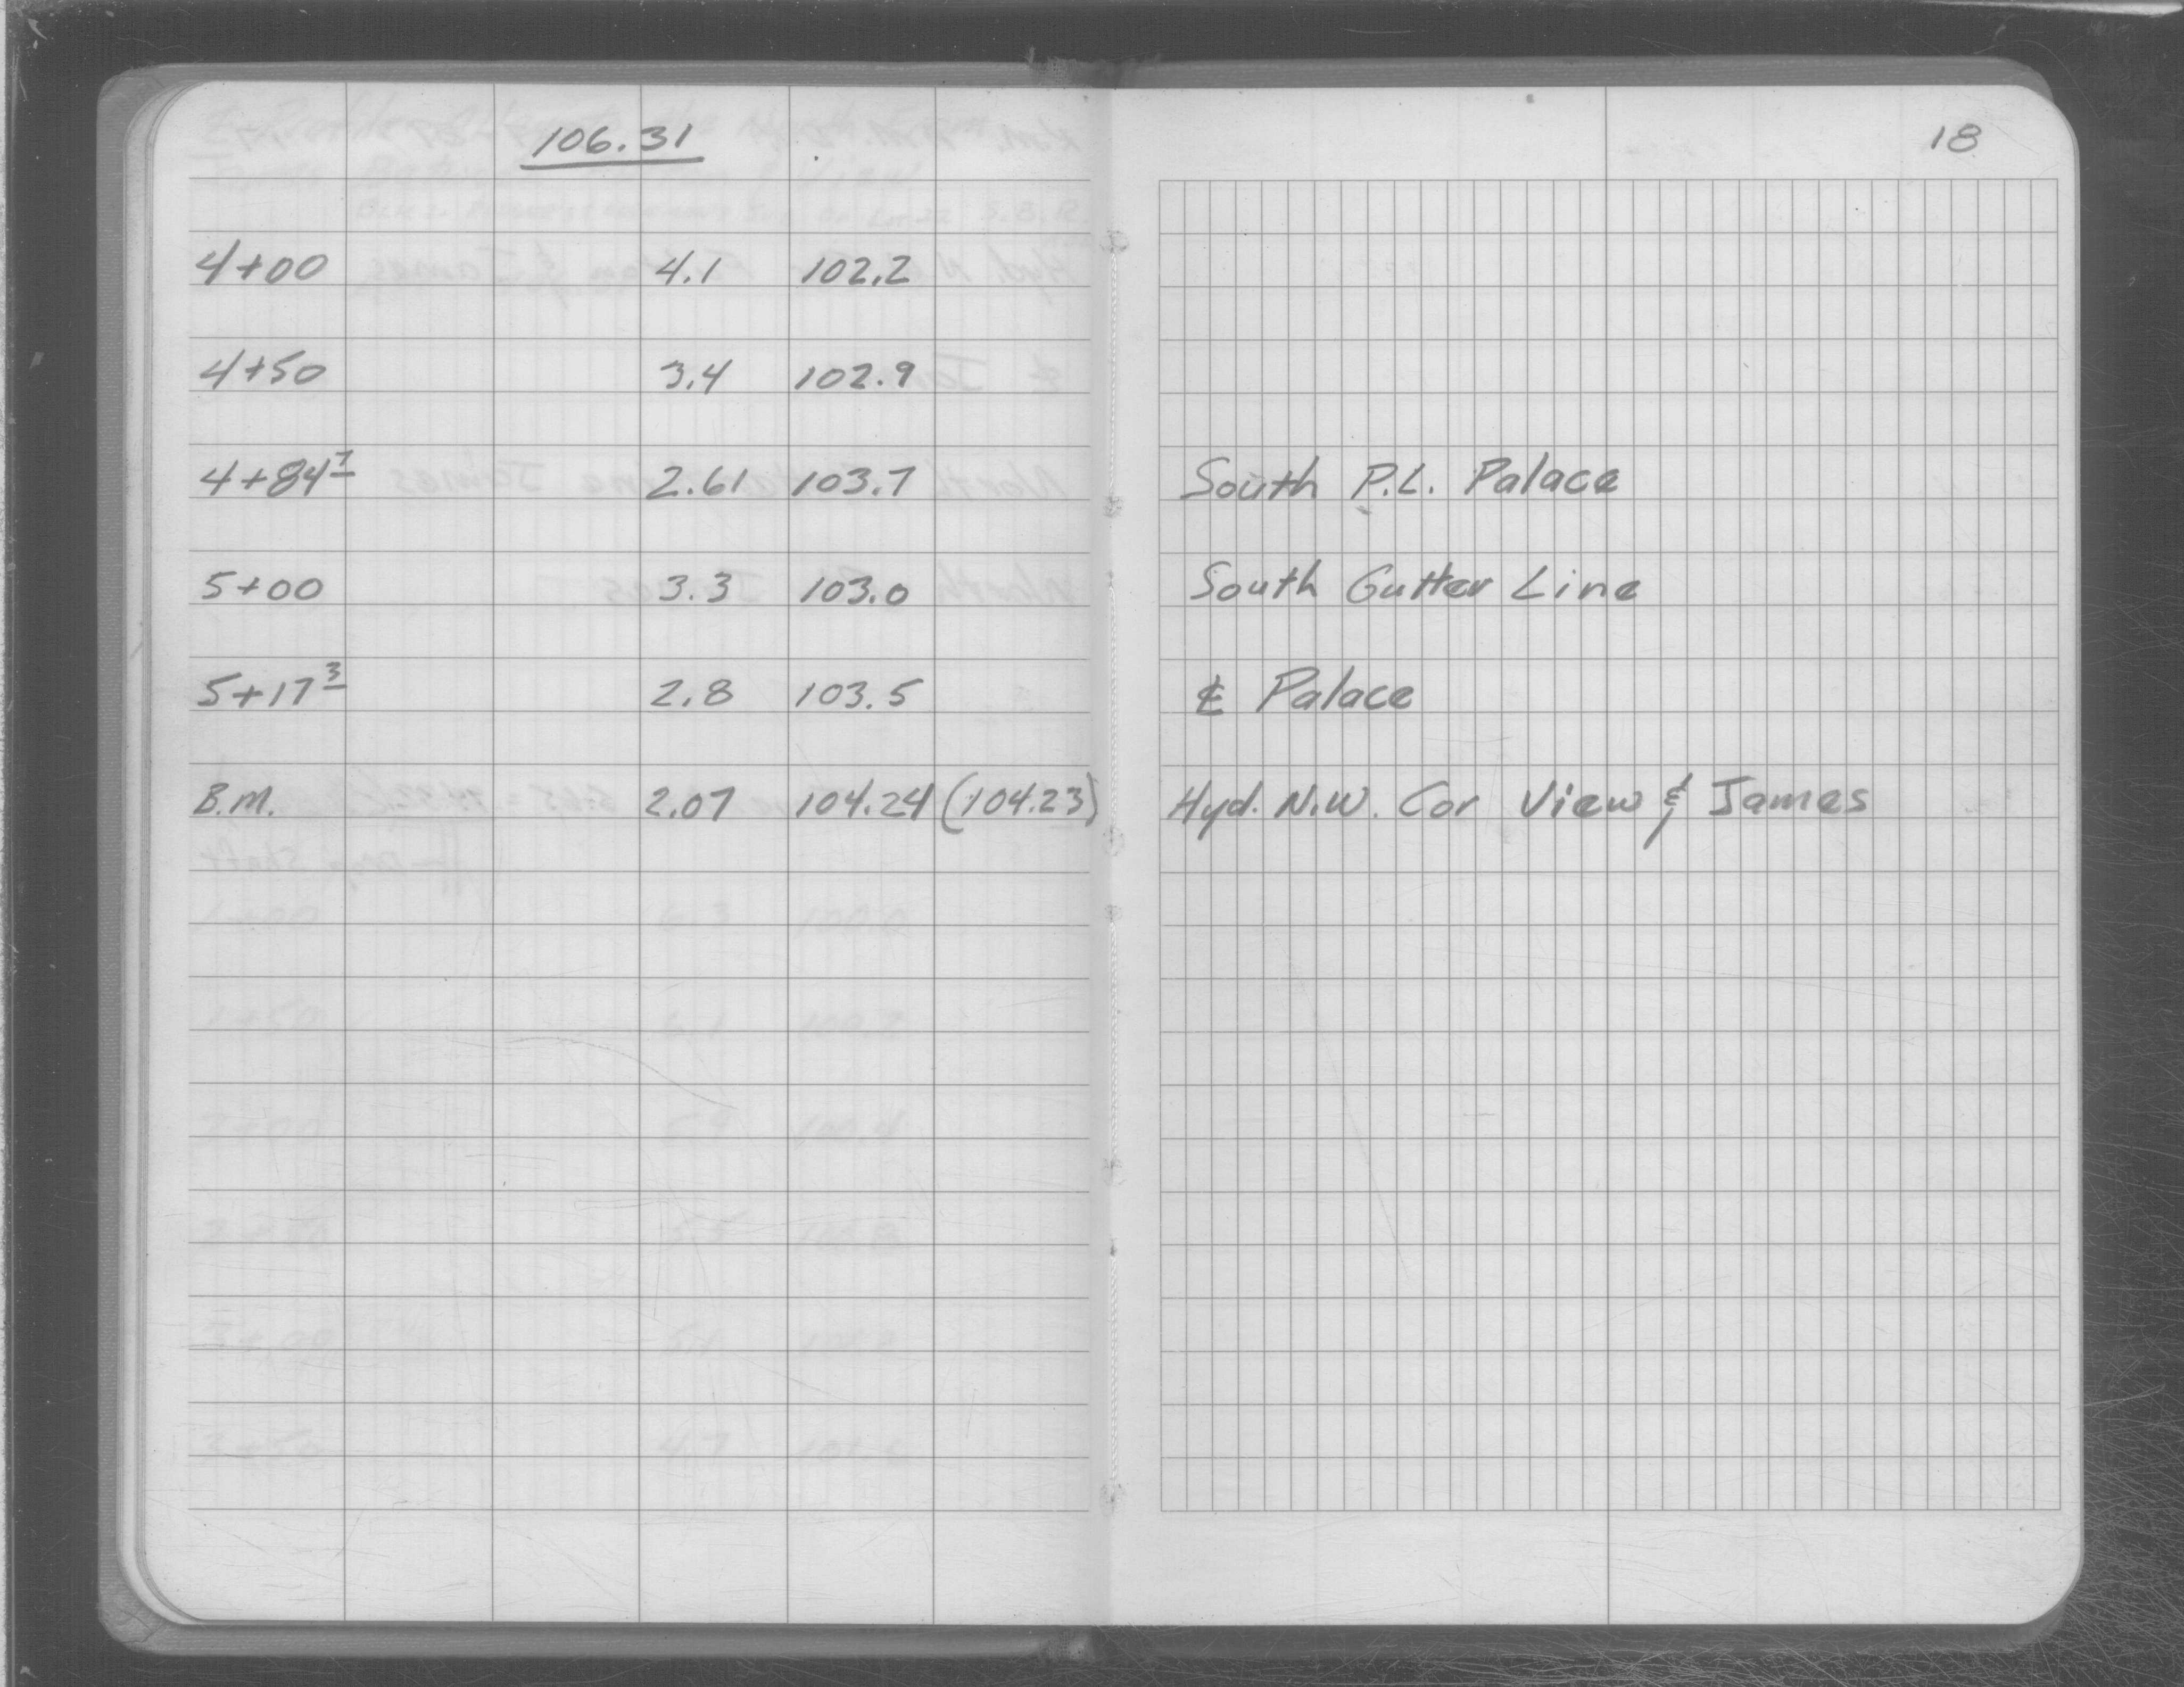 106.31
18
4+00 4.1 102.2
4+50 3.4 102.9
4+84⁷ 2.61 103.7 South P.L. Palace
5+00 3.3 103.0 South Gutter Line
5+17³ 2.8 103.5 ℄ Palace
B.M. 2.07 104.24 (104.23) Hyd. N.W. Cor View & James